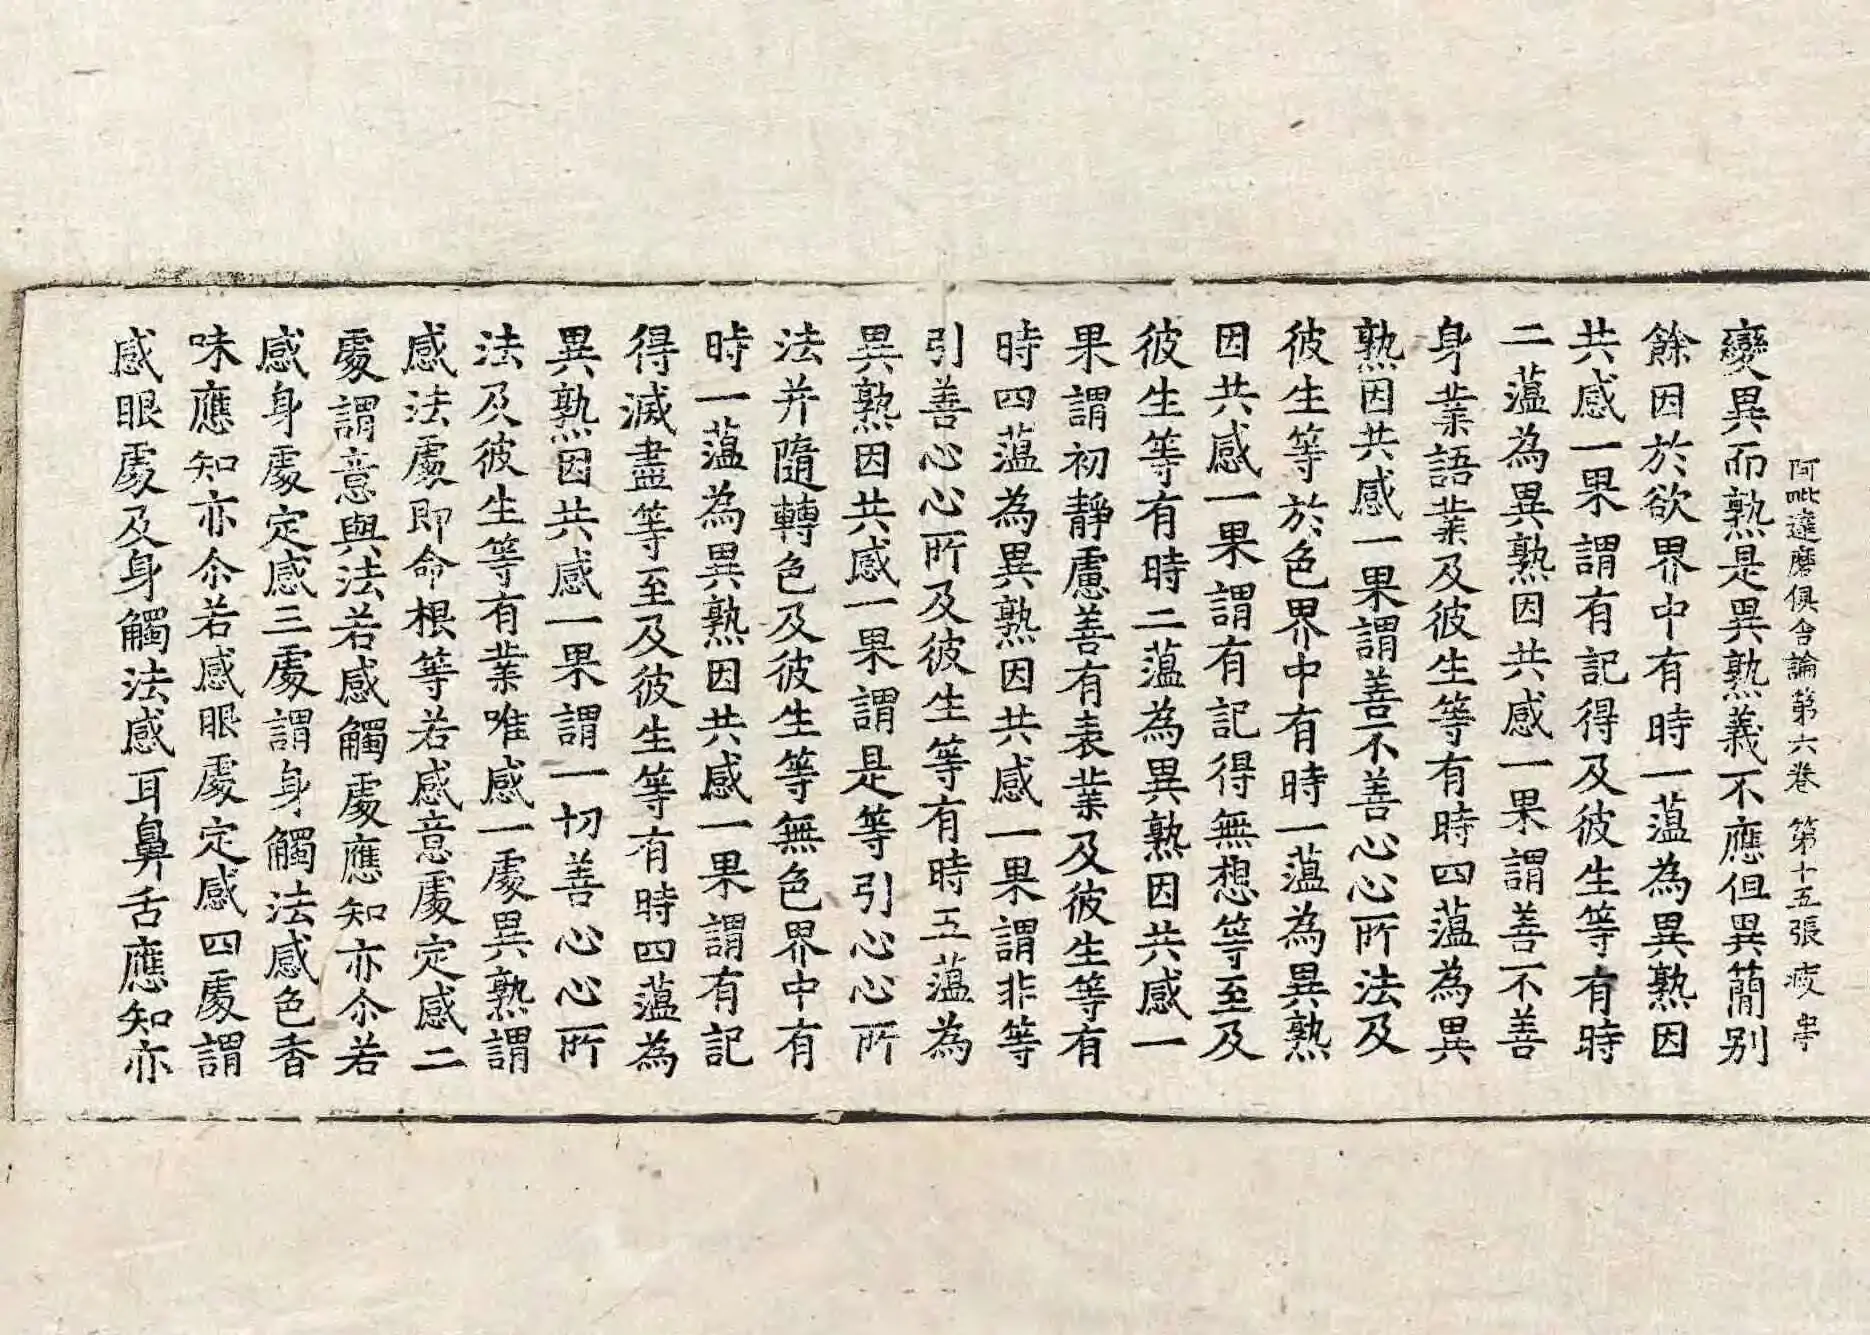 阿毗達磨俱舍論第六卷 第十五張 疲 㠪
變異而熟是異熟義不應但異簡別
餘因於欲界中有時一蕰為異熟因
共感一果謂有記得及彼生等有時
二蕰為異熟因共感一果謂善不善
身業語業及彼生等有時四蕰為異
熟因共感一果謂善不善心心所法及
彼生等於色界中有時一蕰為異熟
因共感一果謂有記得無想等至及
彼生等有時二蕰為異熟因共感一
果謂初靜慮善有表業及彼生等有
時四蕰為異熟因共感一果謂非等
引善心心所及彼生等有時五蕰為
異熟因共感一果謂是等引心心所
法并隨轉色及彼生等無色界中有
時一蕰為異熟因共感一果謂有記
得滅盡等至及彼生等有時四蕰為
異熟因共感一果謂一切善心心所
法及彼生等有業唯感一處異熟謂
感法處即命根等若感意處定感二
處謂意與法若感觸處應知亦尒若
感身處定感三處謂身觸法感色香
味應知亦尒若感眼處定感四處謂
感眼處及身觸法感耳鼻舌應知亦